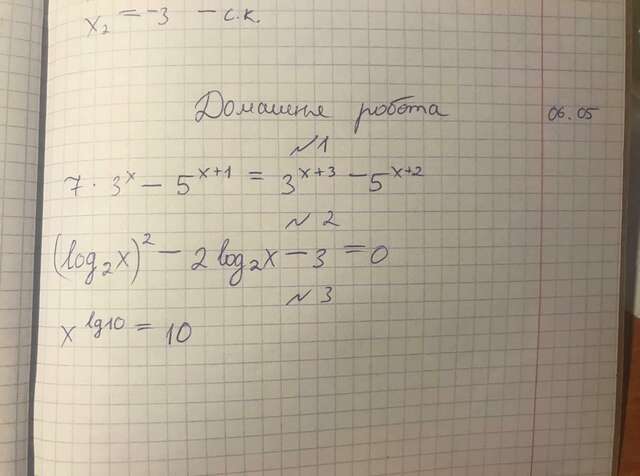 x₂ = -3 - с.к.
Домашня робота 06.05
№1
7 · 3ˣ - 5ˣ⁺¹ = 3ˣ⁺³ - 5ˣ⁺²
№2
(log₂x)² - 2log₂x - 3 = 0
№3
x^lg10 = 10